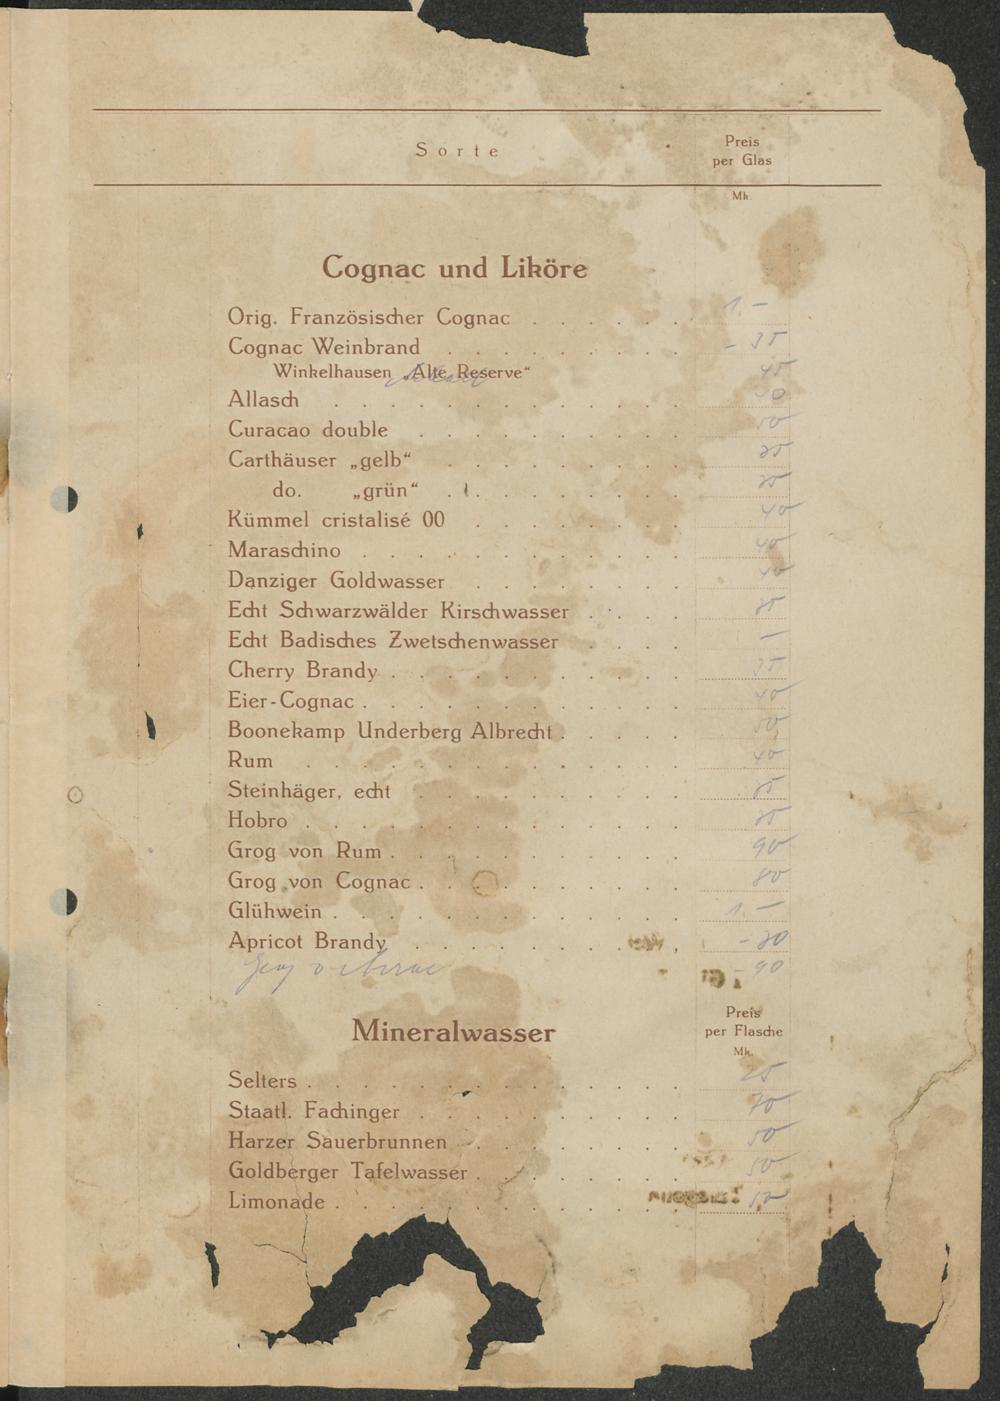 Sorte
Preis
per Glas
Mk.
Cognac und Liköre
Orig. Französischer Cognac . . . . . . 1.-
Cognac Weinbrand . . . . . . . . . - 35
Winkelhausen „Alte Reserve“ 45
Allasch . . . . . . . . . . . . .
Curacao double . . . . . . . . . . 50
Carthäuser „gelb“ . . . . . . . . .
do. „grün“ . . . . . . . . .
Kümmel cristalisé 00 . . . . . . . . 40
Maraschino . . . . . . . . . . . . 40
Danziger Goldwasser . . . . . . . . 40
Echt Schwarzwälder Kirschwasser . . . .
Echt Badisches Zwetschenwasser . . . .
Cherry Brandy . . . . . . . . . . . 35
Eier-Cognac . . . . . . . . . . . . 40
Boonekamp Underberg Albrecht . . . . . 50
Rum . . . . . . . . . . . . . . 40
Steinhäger, echt . . . . . . . . . .
Hobro . . . . . . . . . . . . . .
Grog von Rum . . . . . . . . . . . 90
Grog von Cognac . . . . . . . . . . 80
Glühwein . . . . . . . . . . . . . 1.-
Apricot Brandy . . . . . . . . . .
90
Mineralwasser
Preis
per Flasche
Mk.
Selters . . . . . . . . . . . . . . 25
Staatl. Fachinger . . . . . . . . . . 70
Harzer Sauerbrunnen . . . . . . . . . 50
Goldberger Tafelwasser . . . . . . . . 50
Limonade . . . . . . . . . . . . . 50